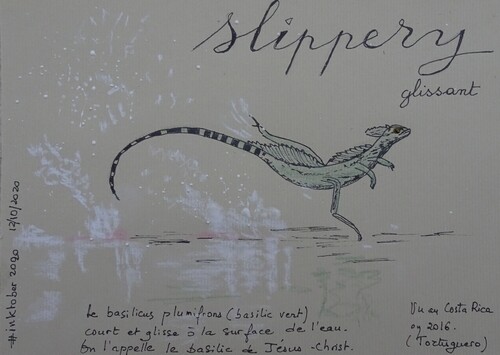 slippery
glissant
#inktober 2020 12/10/2020
Le basilicus plumifrons (basilic vert)
court et glisse à la surface de l'eau.
On l'appelle le basilic de Jésus-Christ.
Vu au Costa Rica
en 2016.
(Tortuguero)